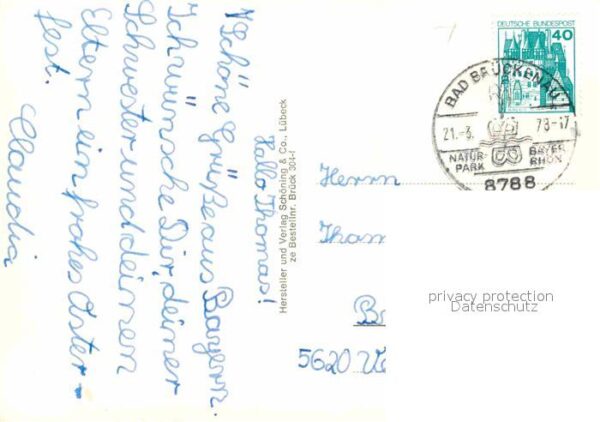 Hallo Thomas!
Schöne Grüße aus Bayern.
Ich wünsche Dir, deiner
Schwester und deinen
Eltern ein frohes Oster-
fest.
Claudia
Hersteller und Verlag Schöning & Co., Lübeck
ze Bestellnr. Brück 30-I
DEUTSCHE BUNDESPOST
40
BAD BRÜCKENAU
21.-3. 78-17
NATUR PARK
BAYER RHÖN
8788
Herrn
Thom
B
5620 Ve
privacy protection
Datenschutz